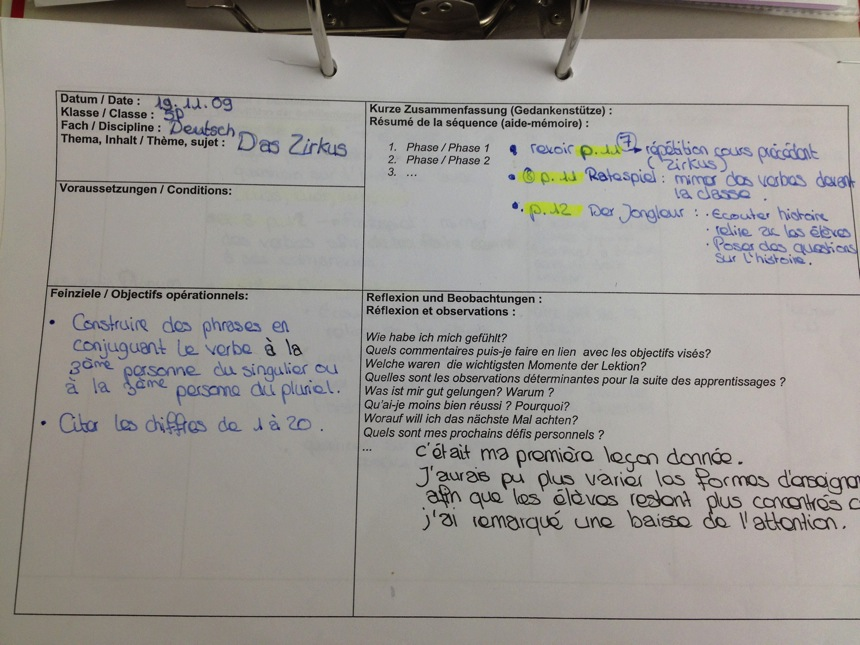 Datum / Date : 19.11.09
Klasse / Classe : 5P
Fach / Discipline : Deutsch
Thema, Inhalt / Thème, sujet : Das Zirkus
Voraussetzungen / Conditions:
Kurze Zusammenfassung (Gedankenstütze) :
Résumé de la séquence (aide-mémoire) :
1. Phase / Phase 1
2. Phase / Phase 2
3. ...
• revoir p.11 ⑦ → répétition cours précédent
(Zirkus)
• ⑧ p.11 Ratespiel : mimer des verbes devant
la classe.
• p.12 Der Jongleur : • Ecouter histoire
• relire ac les élèves
• Poser des questions
sur l'histoire.
Feinziele / Objectifs opérationnels:
• Construire des phrases en
conjuguant le verbe à la
3ème personne du singulier ou
à la 3ème personne du pluriel.
• Citer les chiffres de 1 à 20.
Reflexion und Beobachtungen :
Réflexion et observations :
Wie habe ich mich gefühlt?
Quels commentaires puis-je faire en lien avec les objectifs visés?
Welche waren die wichtigsten Momente der Lektion?
Quelles sont les observations déterminantes pour la suite des apprentissages ?
Was ist mir gut gelungen? Warum ?
Qu'ai-je moins bien réussi ? Pourquoi?
Worauf will ich das nächste Mal achten?
Quels sont mes prochains défis personnels ?
...
c'était ma première leçon donnée.
J'aurais pu plus varier les formes d'enseignem
afin que les élèves restent plus concentrés c
j'ai remarqué une baisse de l'attention.